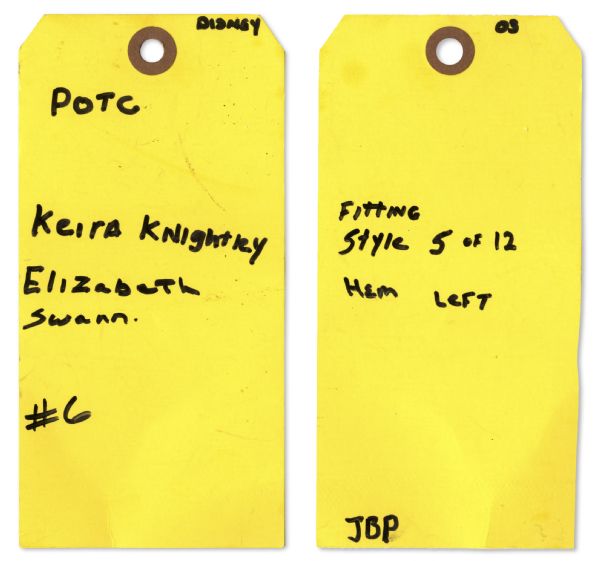 DISNEY
POTC
Keira Knightley
Elizabeth
Swann.
#6
03
Fitting
Style 5 of 12
Hem Left
JBP